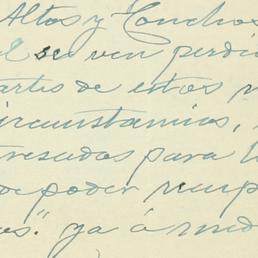 Altos y Conchos
se ven perdi
artes de estos
ircunstancias,
tresadas para
poder
os". ya á med